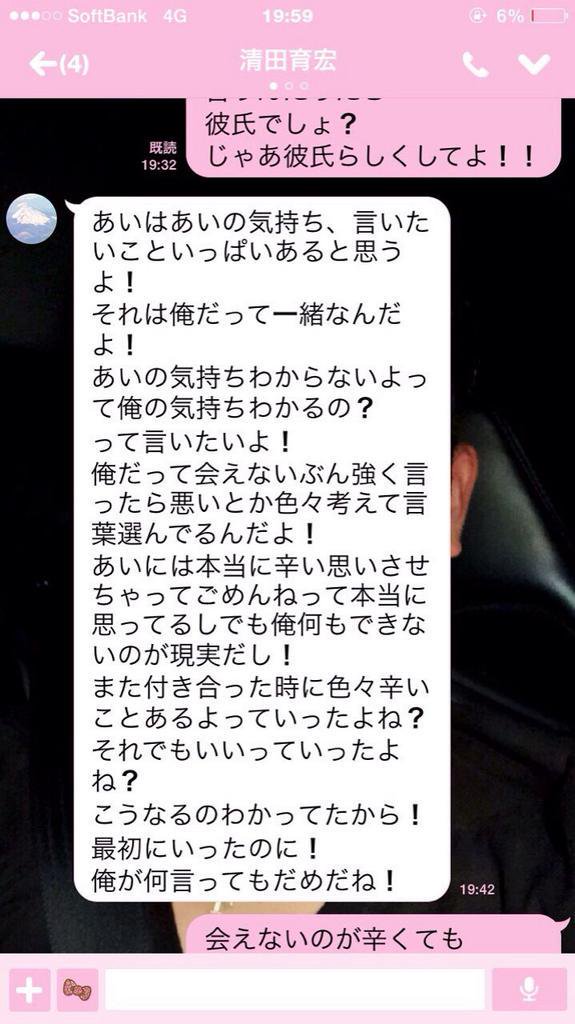 SoftBank 4G 19:59 6%
(4) 清田育宏
彼氏でしょ？
じゃあ彼氏らしくしてよ！！
既読
19:32
あいはあいの気持ち、言いた
いこといっぱいあると思う
よ！
それは俺だって一緒なんだ
よ！
あいの気持ちわからないよっ
て俺の気持ちわかるの？
って言いたいよ！
俺だって会えないぶん強く言
ったら悪いとか色々考えて言
葉選んでるんだよ！
あいには本当に辛い思いさせ
ちゃってごめんねって本当に
思ってるしでも俺何もできな
いのが現実だし！
また付き合った時に色々辛い
ことあるよっていったよね？
それでもいいっていったよ
ね？
こうなるのわかってたから！
最初にいったのに！
俺が何言ってもだめだね！
19:42
会えないのが辛くても